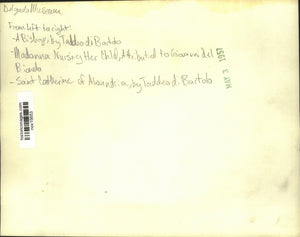 From left to right:
-A Bishop, by Taddeo di Bartolo
-Madonna Nursing Her Child, Attributed to Giovanni del
Biondo
-Saint Catherine of Alexandria, by Taddeo di Bartolo
MAY 3 1951